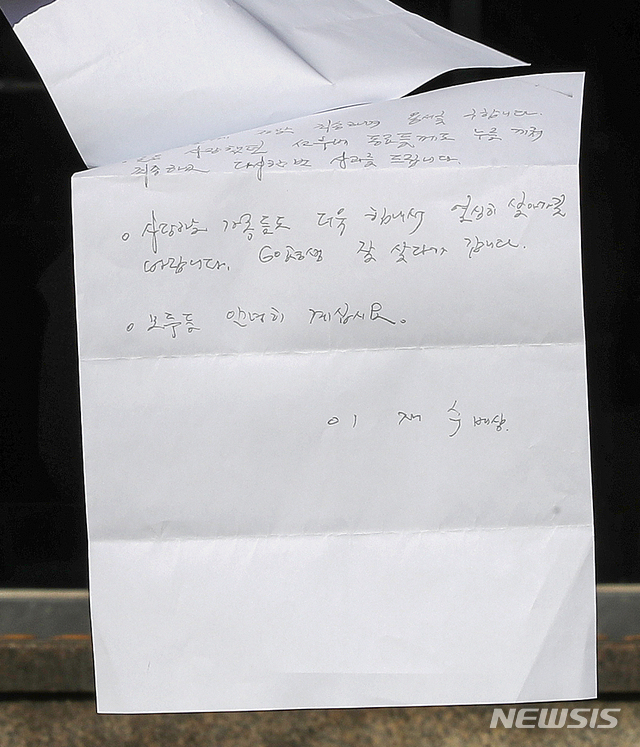 죄송하며 용서를 구합니다.
사랑했던 선후배 동료들께도 누를 끼쳐
죄송하고 다시한번 사과를 드립니다.
○ 사랑하는 가족들도 더욱 힘내서 열심히 살아가길
바랍니다. 60평생 잘 살다가 갑니다.
○ 모두들 안녕히 계십시요.
이 재 수 배상.
NEWSIS